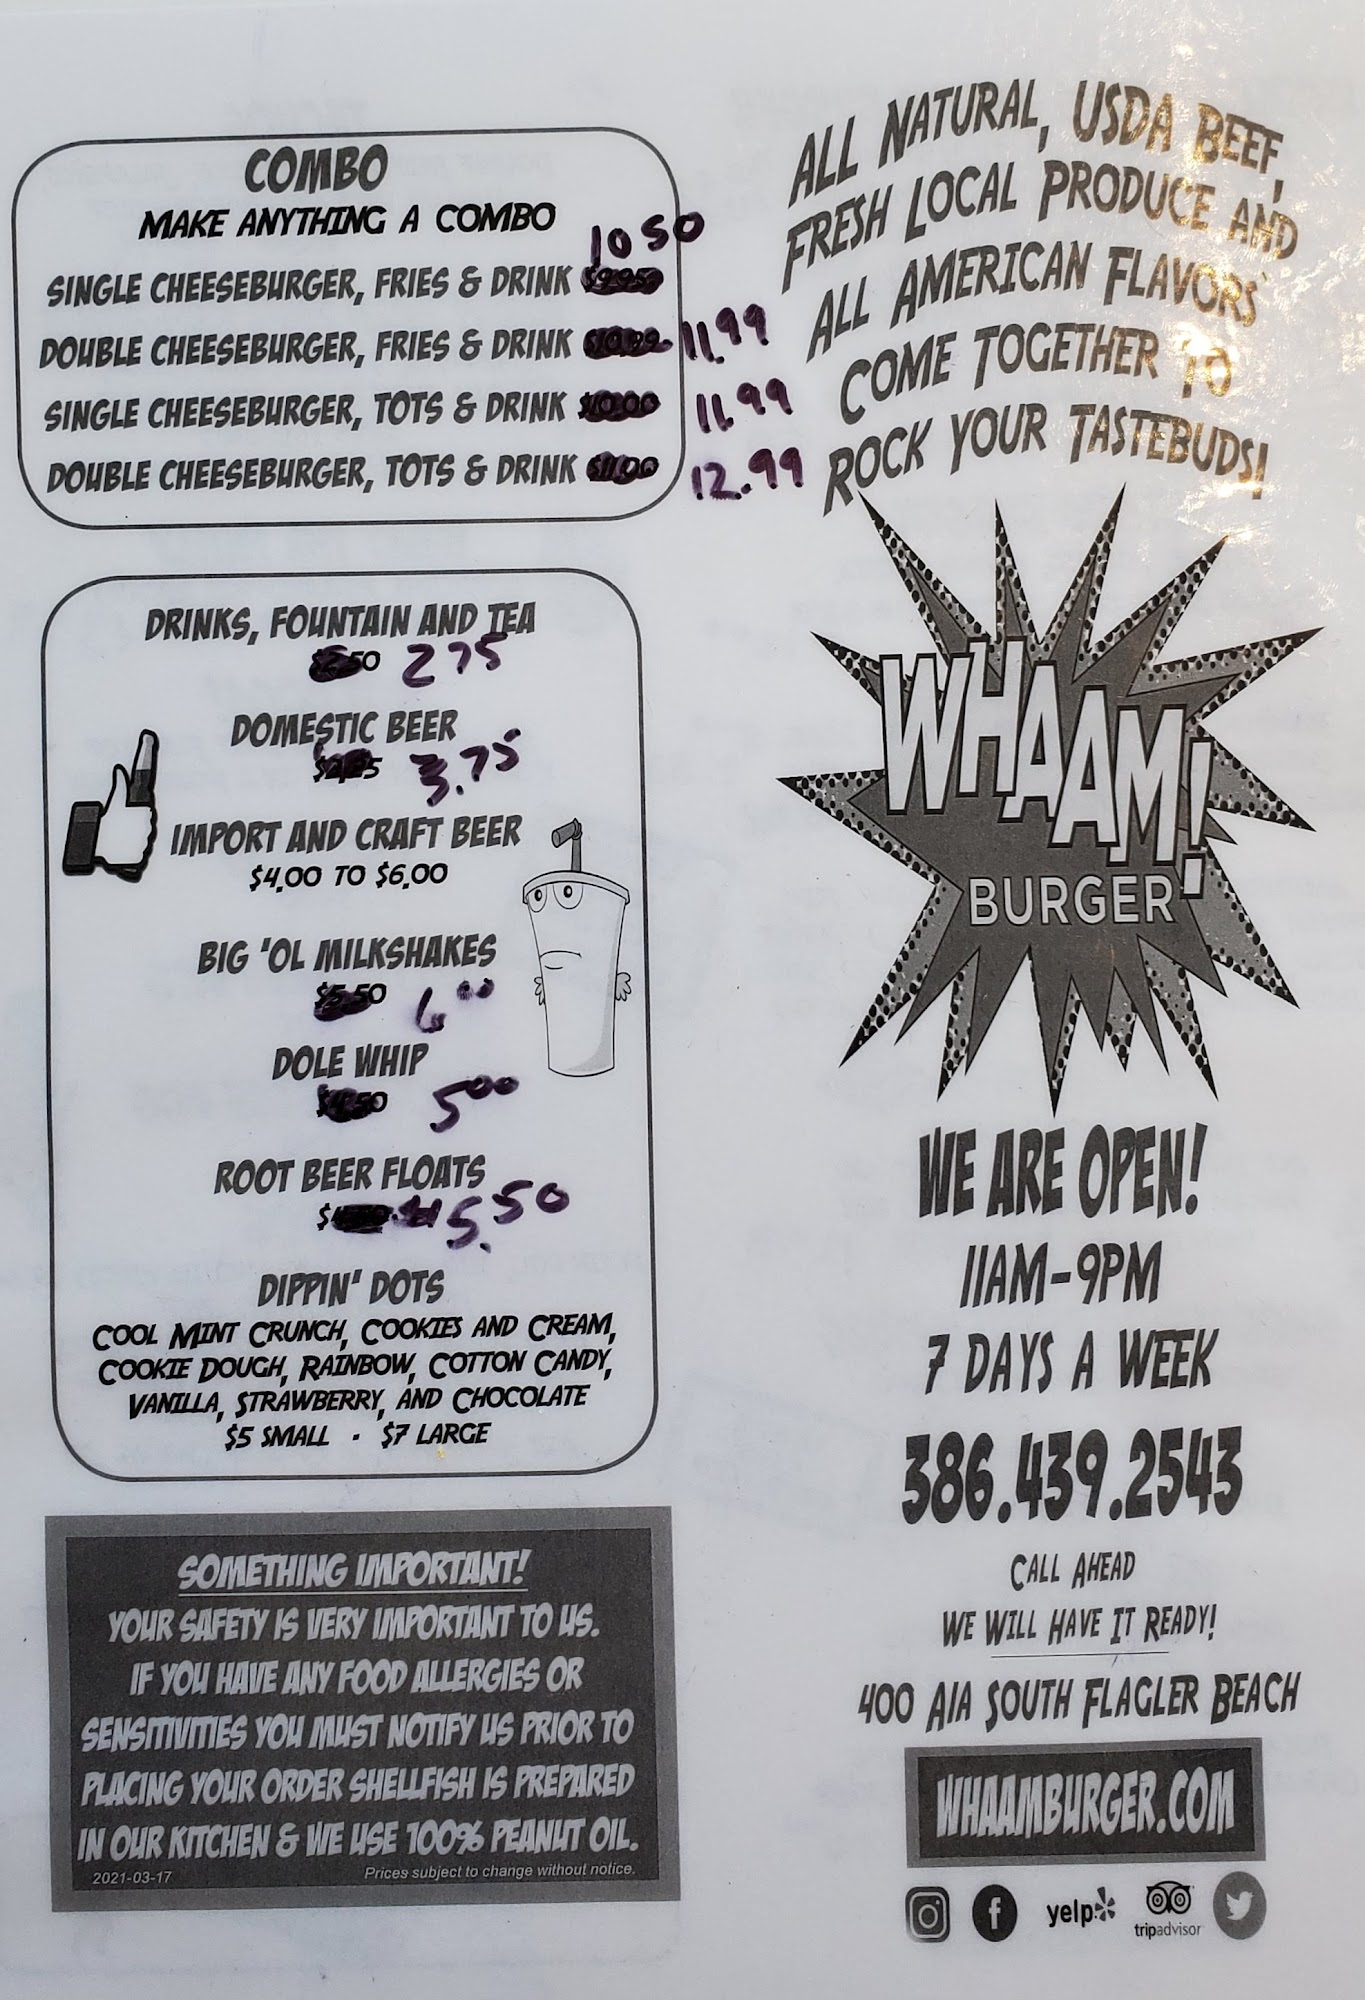 COMBO
MAKE ANYTHING A COMBO
10 50
SINGLE CHEESEBURGER, FRIES & DRINK
DOUBLE CHEESEBURGER, FRIES & DRINK $10.99 11.99
SINGLE CHEESEBURGER, TOTS & DRINK $10.00 11.99
DOUBLE CHEESEBURGER, TOTS & DRINK $11.00 12.99
DRINKS, FOUNTAIN AND TEA
$2.50 2 75
DOMESTIC BEER
3.75
IMPORT AND CRAFT BEER
$4.00 TO $6.00
BIG 'OL MILKSHAKES
$5.50 6 00
DOLE WHIP
$4.50 5 00
ROOT BEER FLOATS
$ 5.50
DIPPIN' DOTS
COOL MINT CRUNCH, COOKIES AND CREAM,
COOKIE DOUGH, RAINBOW, COTTON CANDY,
VANILLA, STRAWBERRY, AND CHOCOLATE
$5 SMALL · $7 LARGE
SOMETHING IMPORTANT!
YOUR SAFETY IS VERY IMPORTANT TO US.
IF YOU HAVE ANY FOOD ALLERGIES OR
SENSITIVITIES YOU MUST NOTIFY US PRIOR TO
PLACING YOUR ORDER SHELLFISH IS PREPARED
IN OUR KITCHEN & WE USE 100% PEANUT OIL.
2021-03-17 Prices subject to change without notice.
ALL NATURAL, USDA BEEF,
FRESH LOCAL PRODUCE AND
ALL AMERICAN FLAVORS
COME TOGETHER TO
ROCK YOUR TASTEBUDS!
WHAAM!
BURGER
WE ARE OPEN!
11AM-9PM
7 DAYS A WEEK
386.439.2543
CALL AHEAD
WE WILL HAVE IT READY!
400 A1A SOUTH FLAGLER BEACH
WHAAMBURGER.COM
yelp
tripadvisor